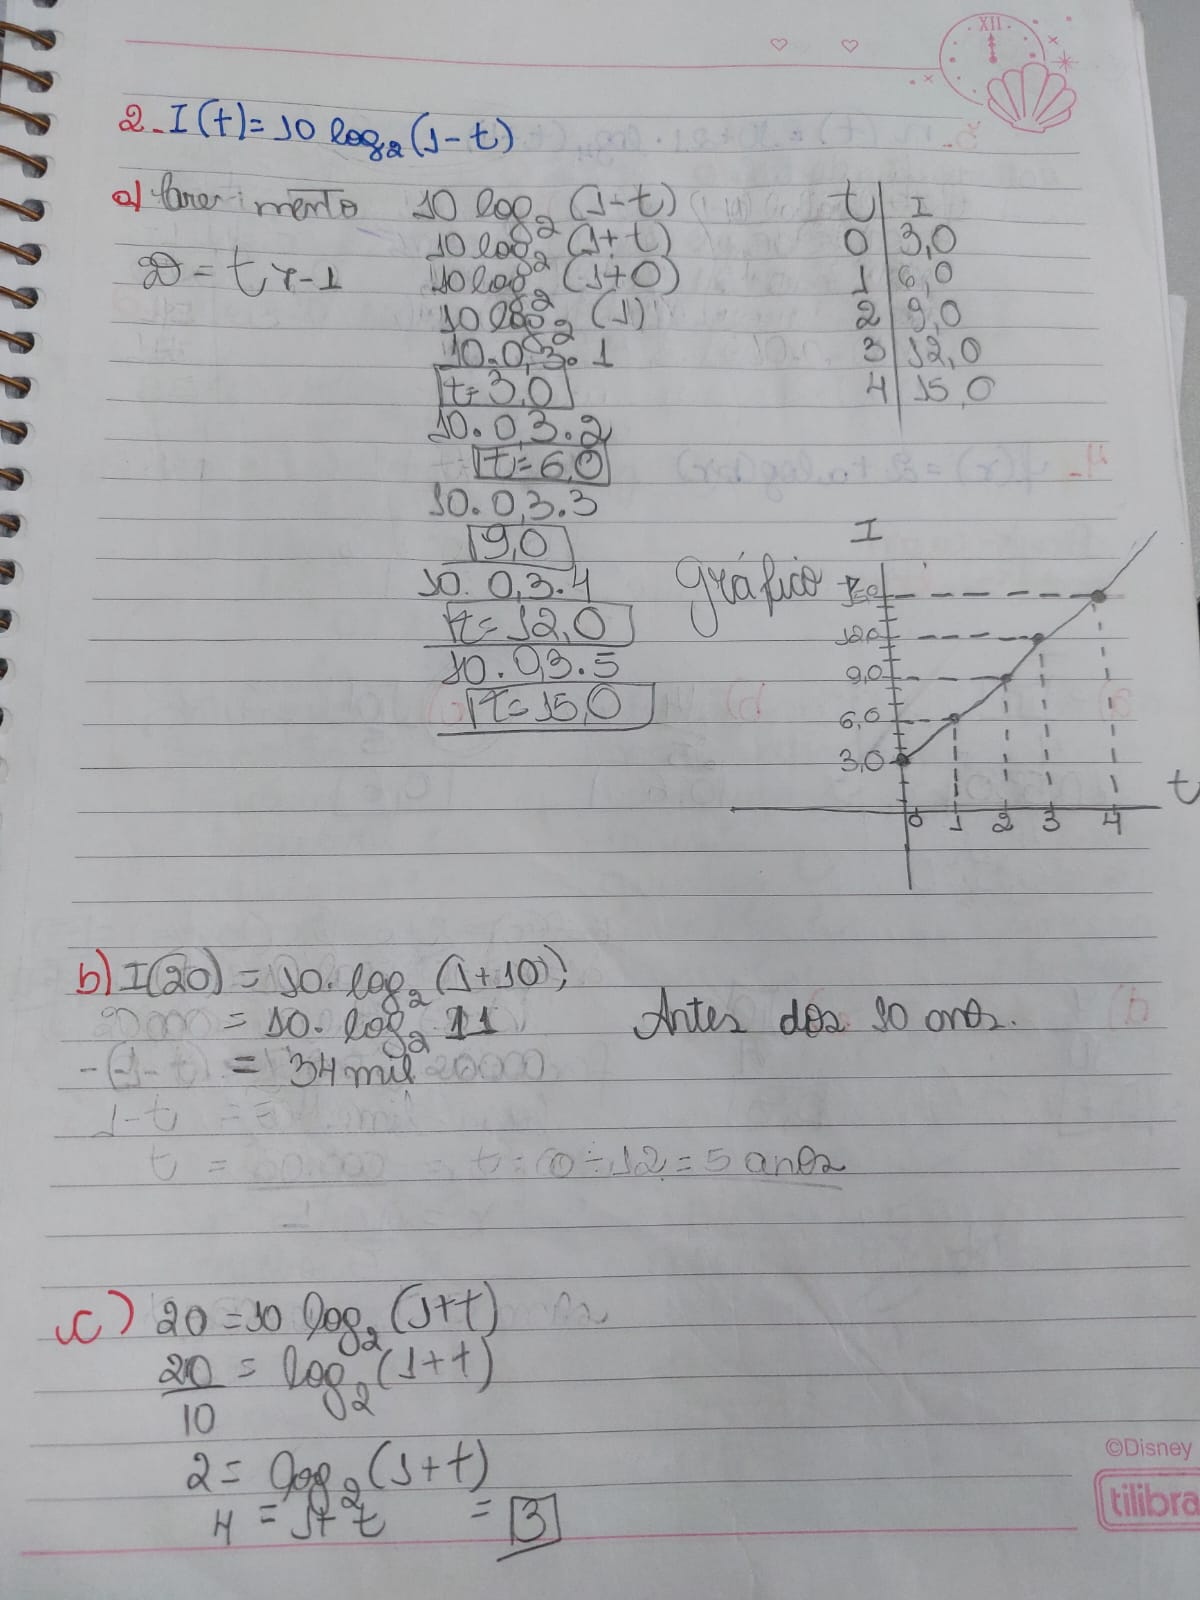 XII
2- I(t)=10 log₂(1-t)
a)
10 log₂ (1-t)
10 log₂ (1+t)
10 log₂ (1+0)
10 log₂ (1)
10.0,3.1
t=3,0
10.0,3.2
t=6,0
10.0,3.3
9,0
10.0,3.4
t=12,0
10.0,3.5
t=15,0
t I
0 3,0
1 6,0
2 9,0
3 12,0
4 15,0
Gráfico
I
12,0
9,0
6,0
3,0
0 1 2 3 4
t
b) I(20) = 10. log₂ (1+10);
= 10. log₂ 11
= 34 mil
Antes dos 10 anos.
1-t =
t = = 5 anos
c) 20=10 log₂(1+t)
20/10 = log₂(1+t)
2= log₂(1+t)
4 = 1+t = 3
©Disney
tilibra